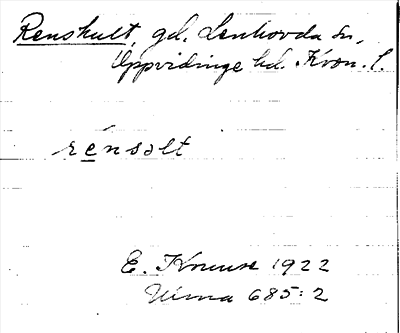 Renshult, gd. Lenhovda sn,
Uppvidinge hd. Kron. l.
rénsəlt
E. 1922
685:2